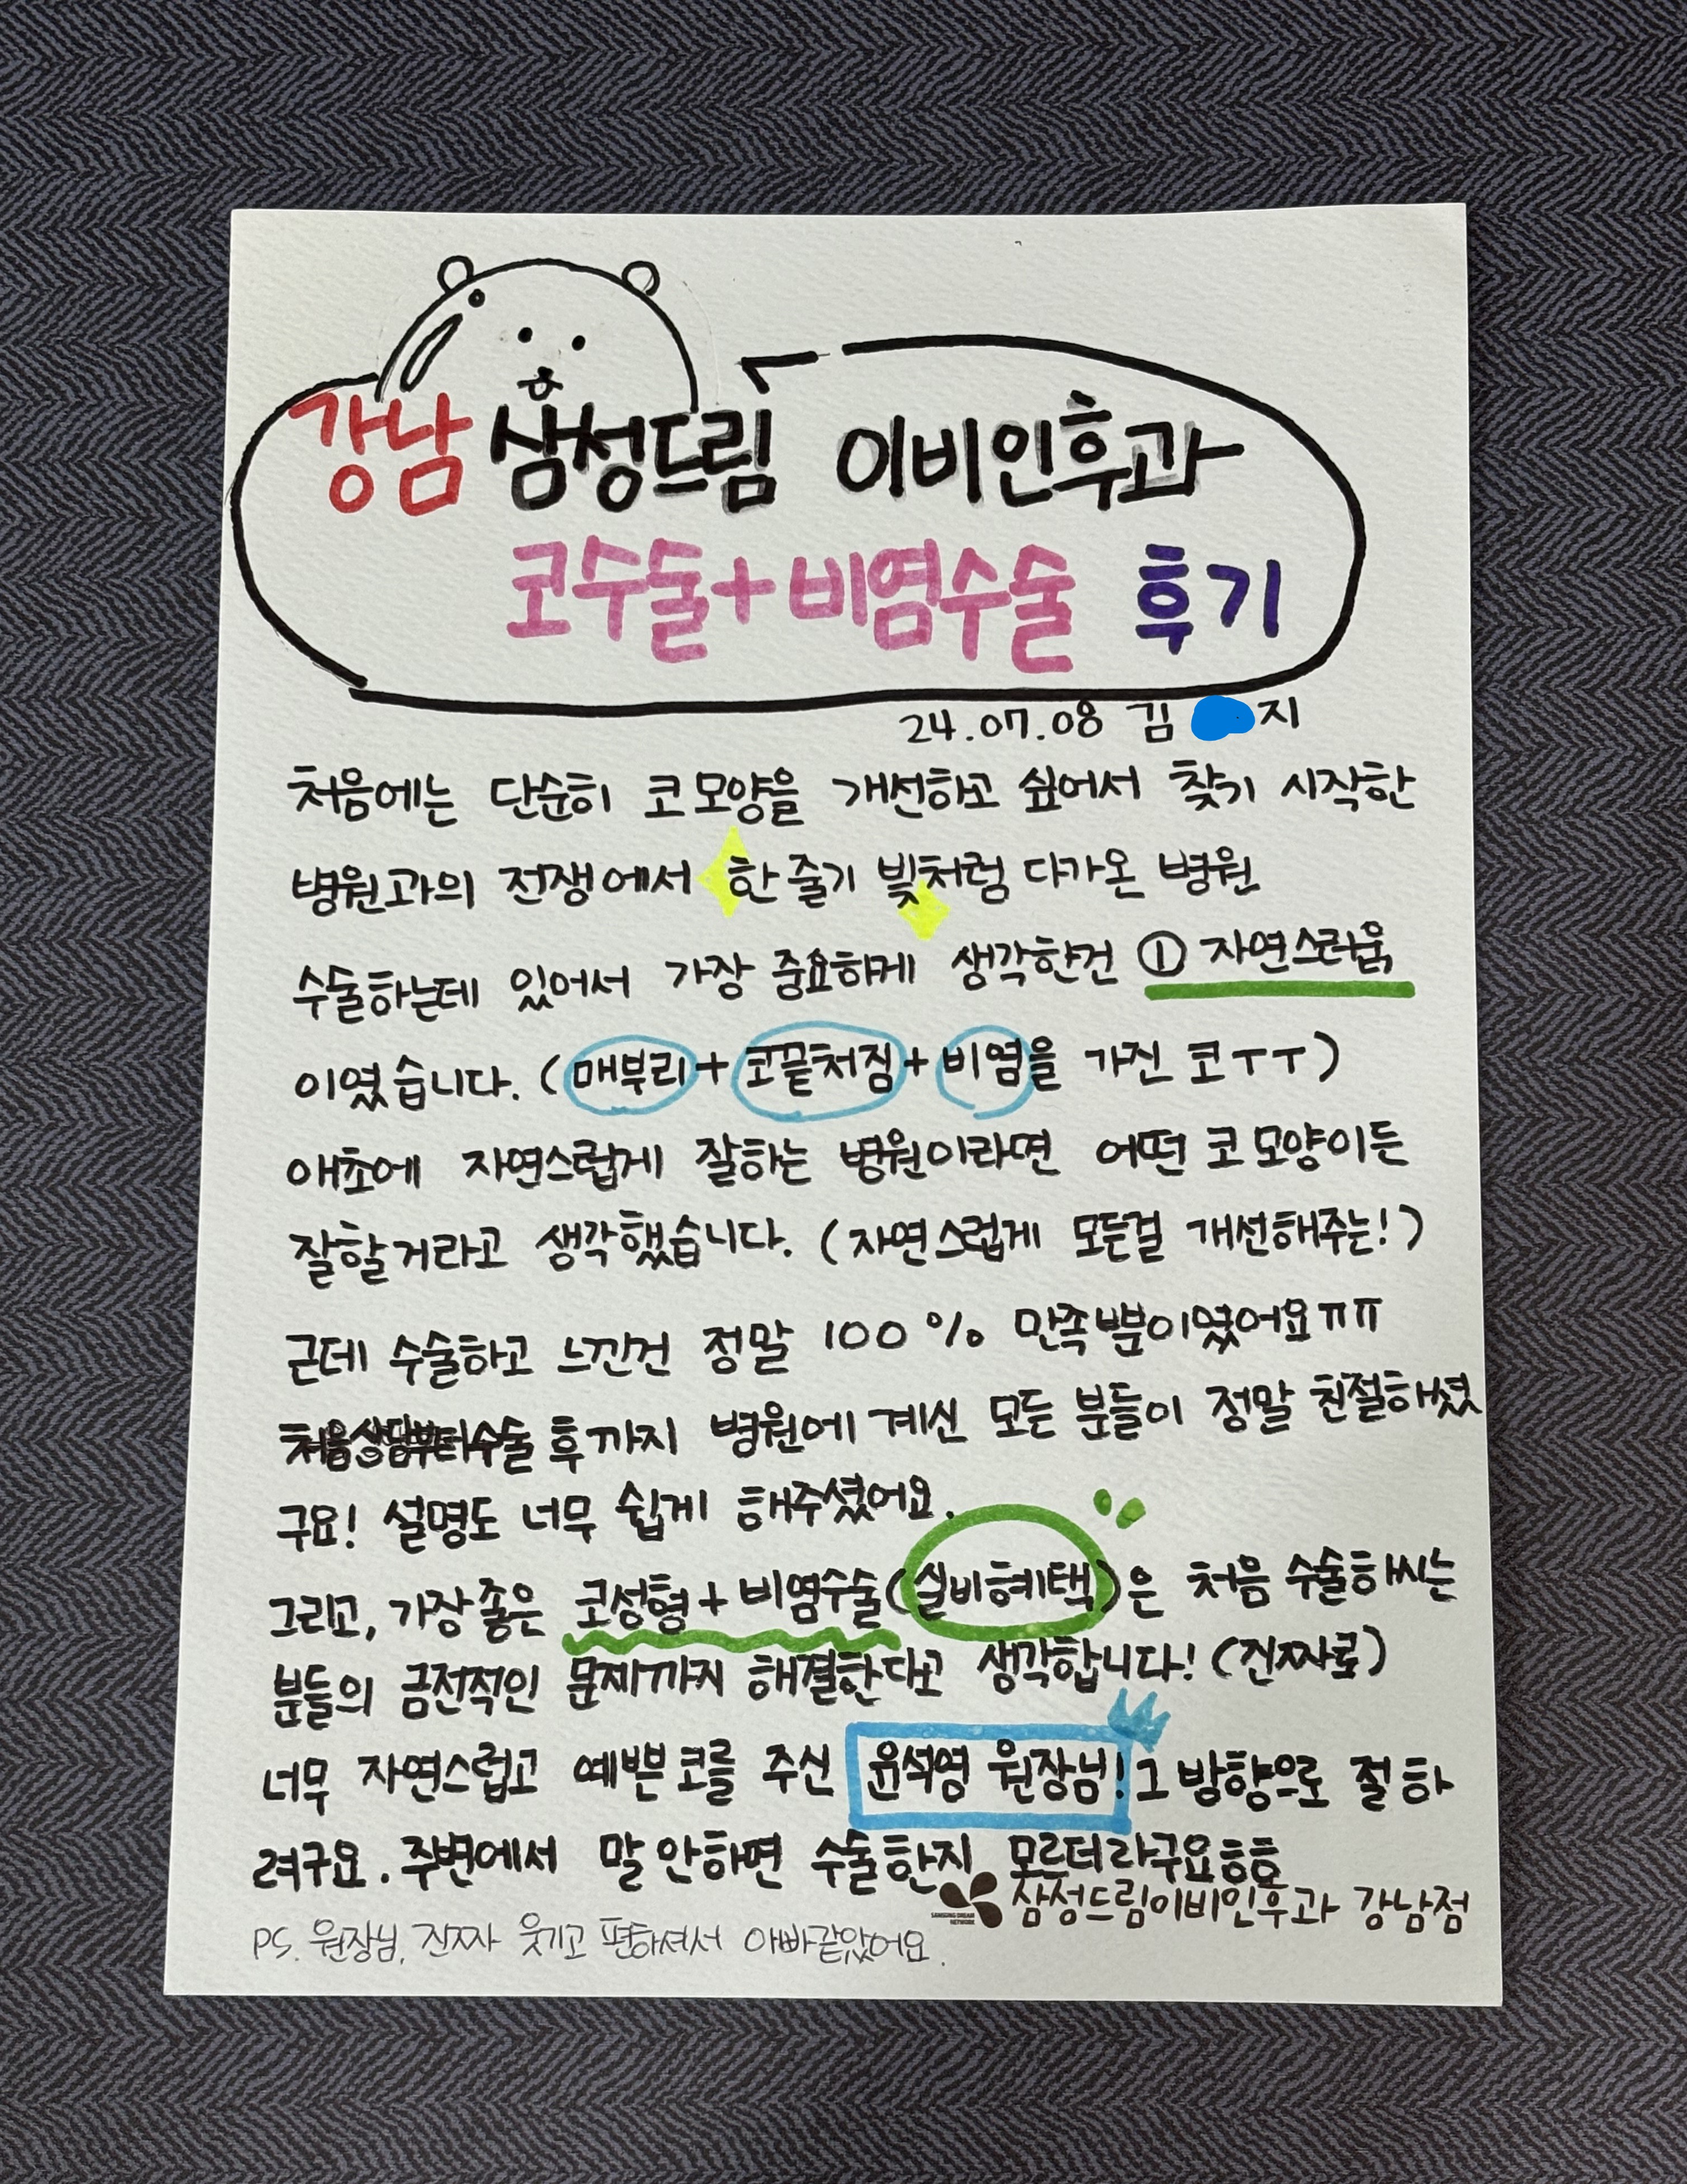 강남 삼성드림 이비인후과
코수술+비염수술 후기
24.07.08 김 지
처음에는 단순히 코 모양을 개선하고 싶어서 찾기 시작한
병원과의 전쟁에서 한 줄기 빛처럼 다가온 병원
수술하는데 있어서 가장 중요하게 생각한건 ① 자연스러움
이였습니다. (매부리+코끝처짐+비염을 가진 코ㅜㅜ)
애초에 자연스럽게 잘하는 병원이라면 어떤 코 모양이든
잘할거라고 생각했습니다. (자연스럽게 모든걸 개선해주는!)
근데 수술하고 느낀건 정말 100% 만족뿐이였어요ㅠㅠ
처음상담부터수술 후까지 병원에 계신 모든 분들이 정말 친절하셨
구요! 설명도 너무 쉽게 해주셨어요.
그리고, 가장 좋은 코성형+비염수술(실비혜택)은 처음 수술하시는
분들의 금전적인 문제까지 해결한다고 생각합니다! (진짜로)
너무 자연스럽고 예쁜 코를 주신 윤석영 원장님! 그 방향으로 절 하
려구요. 주변에서 말 안하면 수술한지 모르더라구요ㅎㅎ
SAMSUNG DREAM
NETWORK
삼성드림이비인후과 강남점
PS. 원장님, 진짜 웃기고 편하셔서 아빠같았어요.